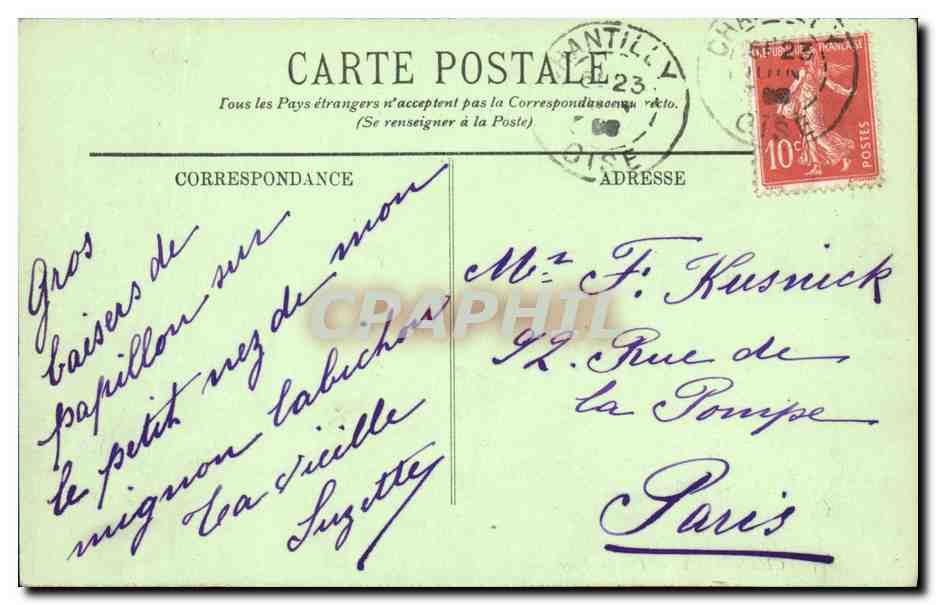 CARTE POSTALE
Tous les Pays étrangers n'acceptent pas la Correspondance au recto.
(Se renseigner à la Poste)
CORRESPONDANCE
ADRESSE
CHANTILLY
23
OISE
CHANTILLY
23
JUIN
OISE
REPUBLIQUE FRANÇAISE
10c
POSTES
Gros
baisers de
papillon sur
le petit nez de mon
mignon labichou
Ta vieille
Suzette
Mr. F. Kusnick
92. Rue de
la Pompe
Paris
CPAPHIL